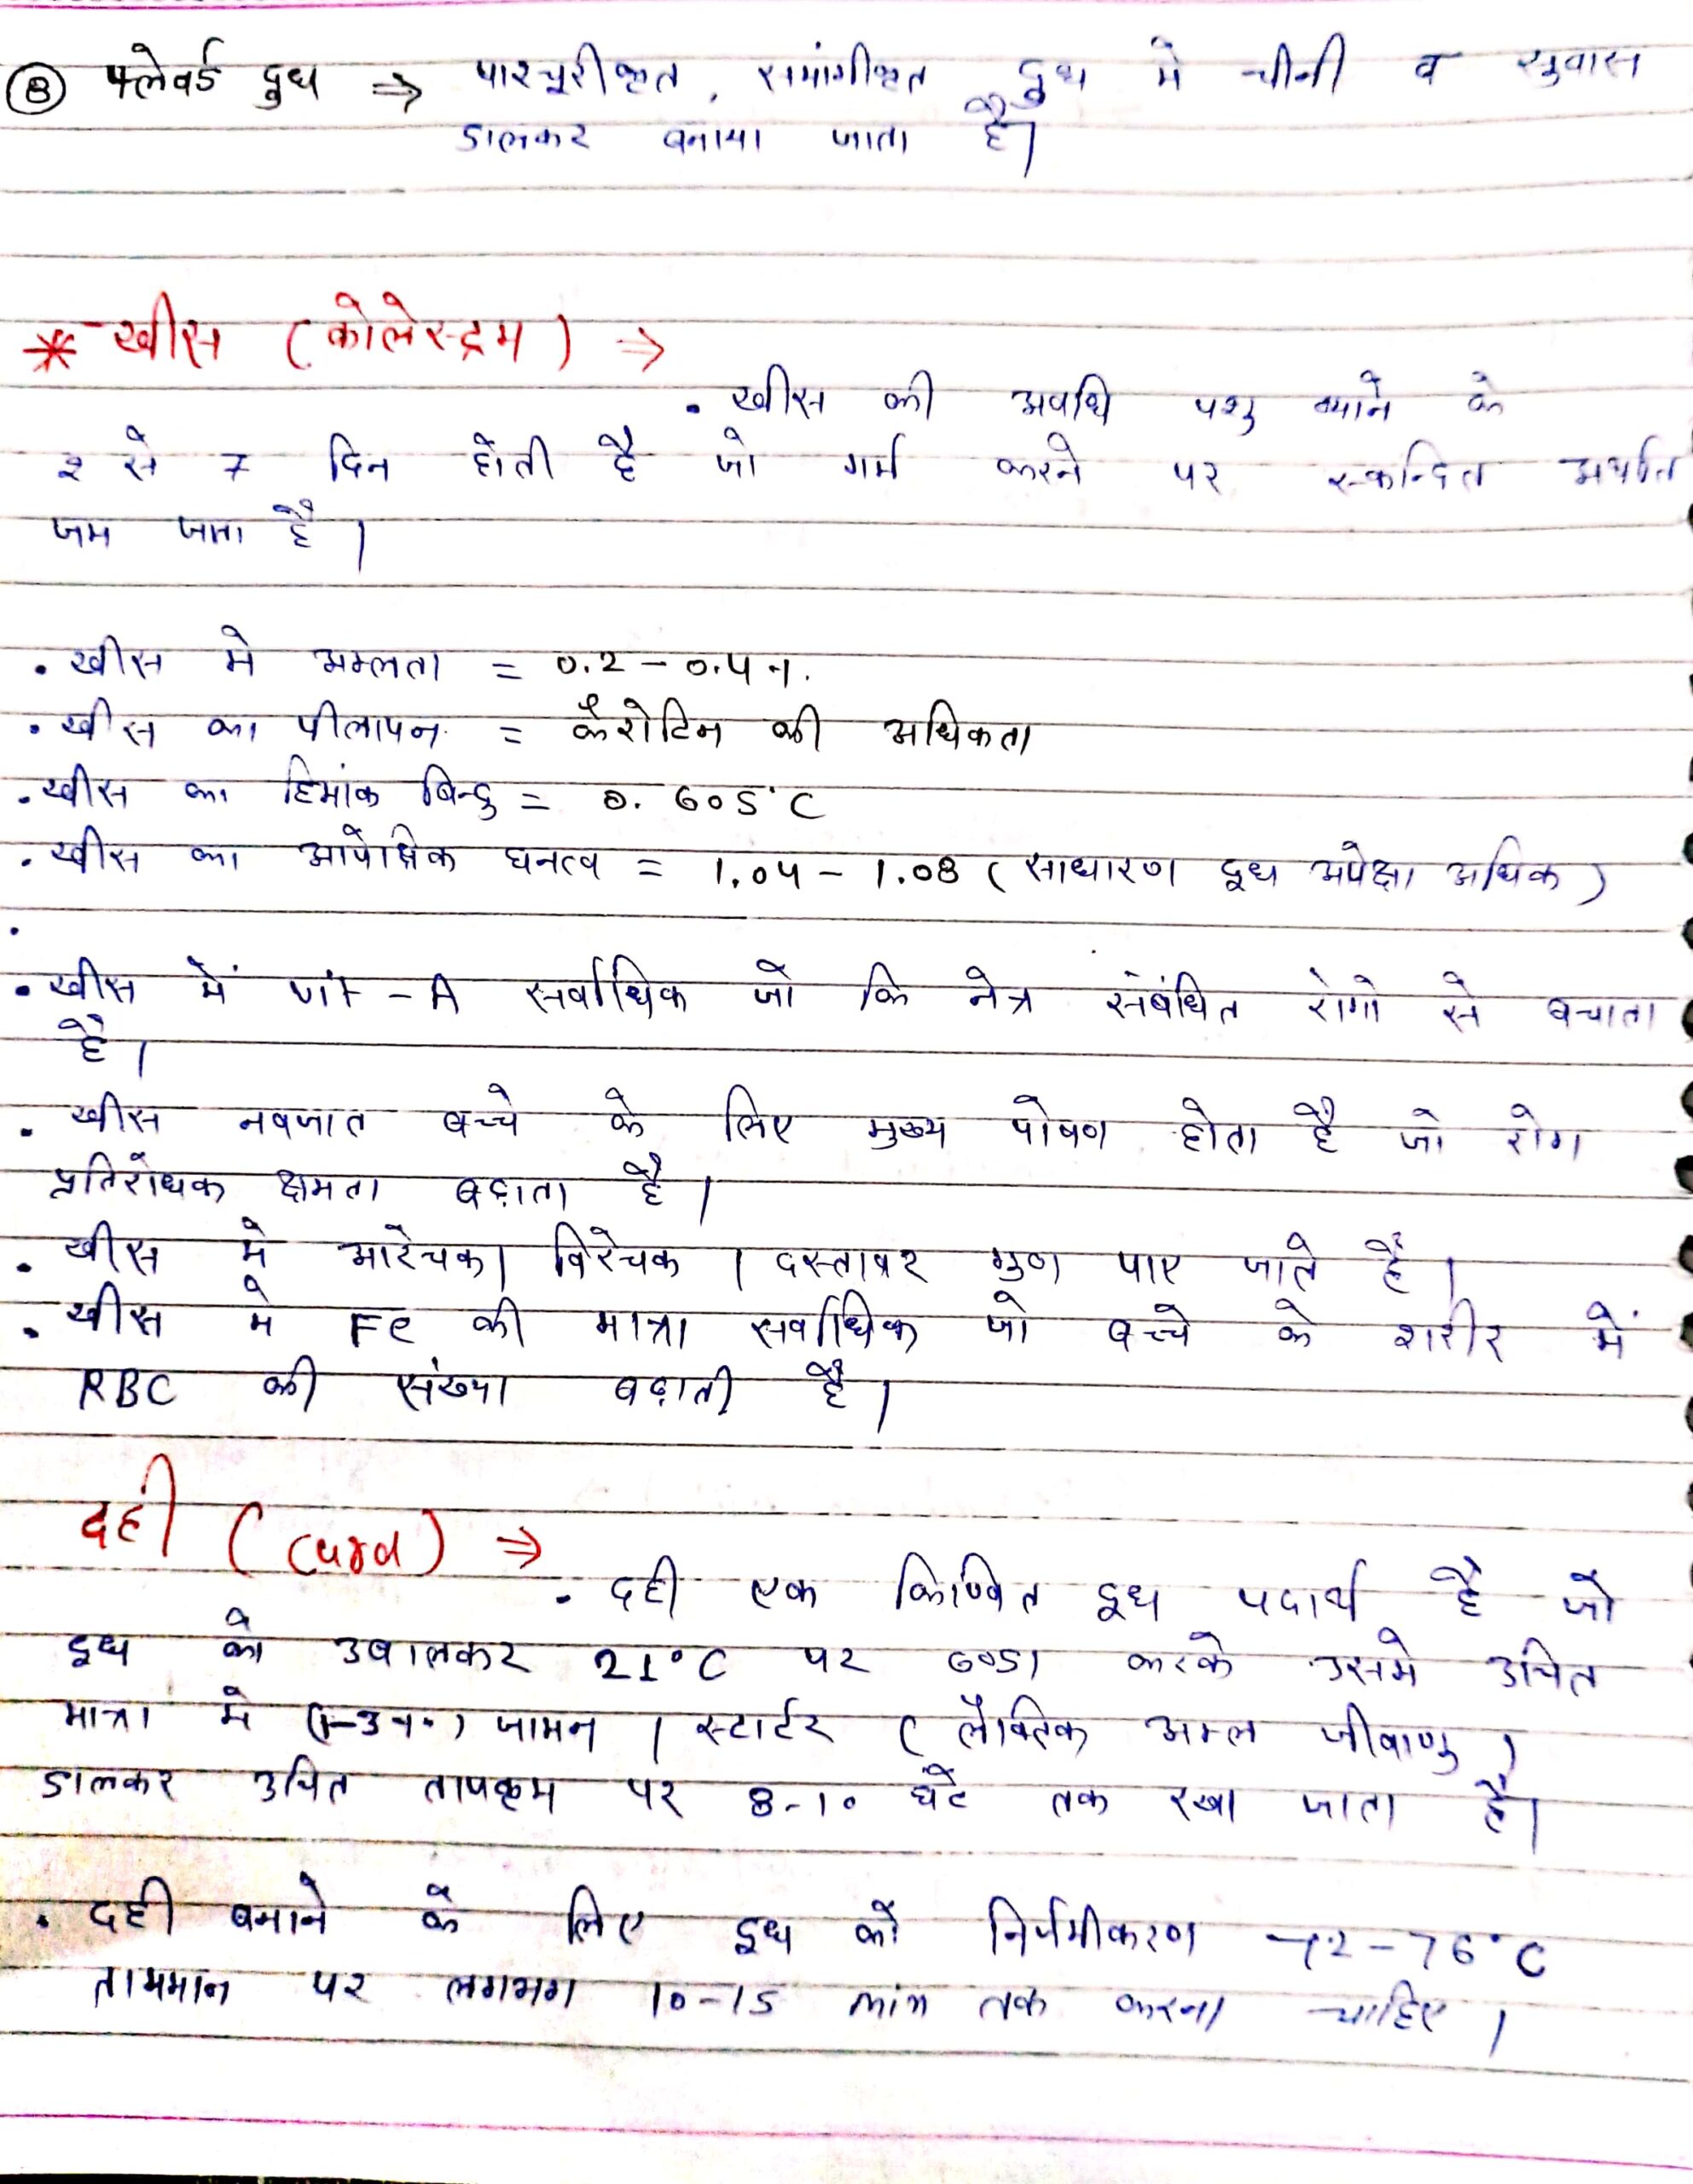 ⑧ फ्लेवर्ड दुध ⇒ पाश्चूरीकृत, समांगीकृत दुध मे चीनी व सुवास
डालकर बनाया जाता है।
* खीस (कोलेस्ट्रम) ⇒
• खीस की अवधि पशु ब्याने के
२ से 7 दिन होती है जो गर्म करने पर स्कन्दित अर्थात
जम जाता है।
• खीस मे अम्लता = 0.2 - 0.4%
• खीस का पीलापन = कैरोटिन की अधिकता
• खीस का हिमांक बिन्दु = 0.605°C
• खीस का आपेक्षिक घनत्व = 1.04 - 1.08 (साधारण दूध अपेक्षा अधिक)
•
• खीस में vit - A सर्वाधिक जो कि नेत्र संबंधित रोगो से बचाता
है।
• खीस नवजात बच्चे के लिए मुख्य पोषण होता है जो रोग
प्रतिरोधक क्षमता बढ़ाता है।
• खीस मे सारेचक। विरेचक । दस्तावर गुण पाए जाते है।
• खीस मे Fe की मात्रा सर्वाधिक जो बच्चे के शरीर में
RBC की संख्या बढ़ाती है।
दही (Curd) ⇒
• दही एक किण्वित दूध पदार्थ है जो
दूध को उबालकर 21°C पर ठण्डा करके उसमे उचित
मात्रा मे (1-3%) जामन / स्टार्टर (लैक्टिक अम्ल जीवाणु)
डालकर उचित तापक्रम पर 8-10 घंटे तक रखा जाता है।
• दही बनाने के लिए दूध को निर्जमीकरण 72-76°C
तापमान पर लगभग 10-15 min तक करना चाहिए।